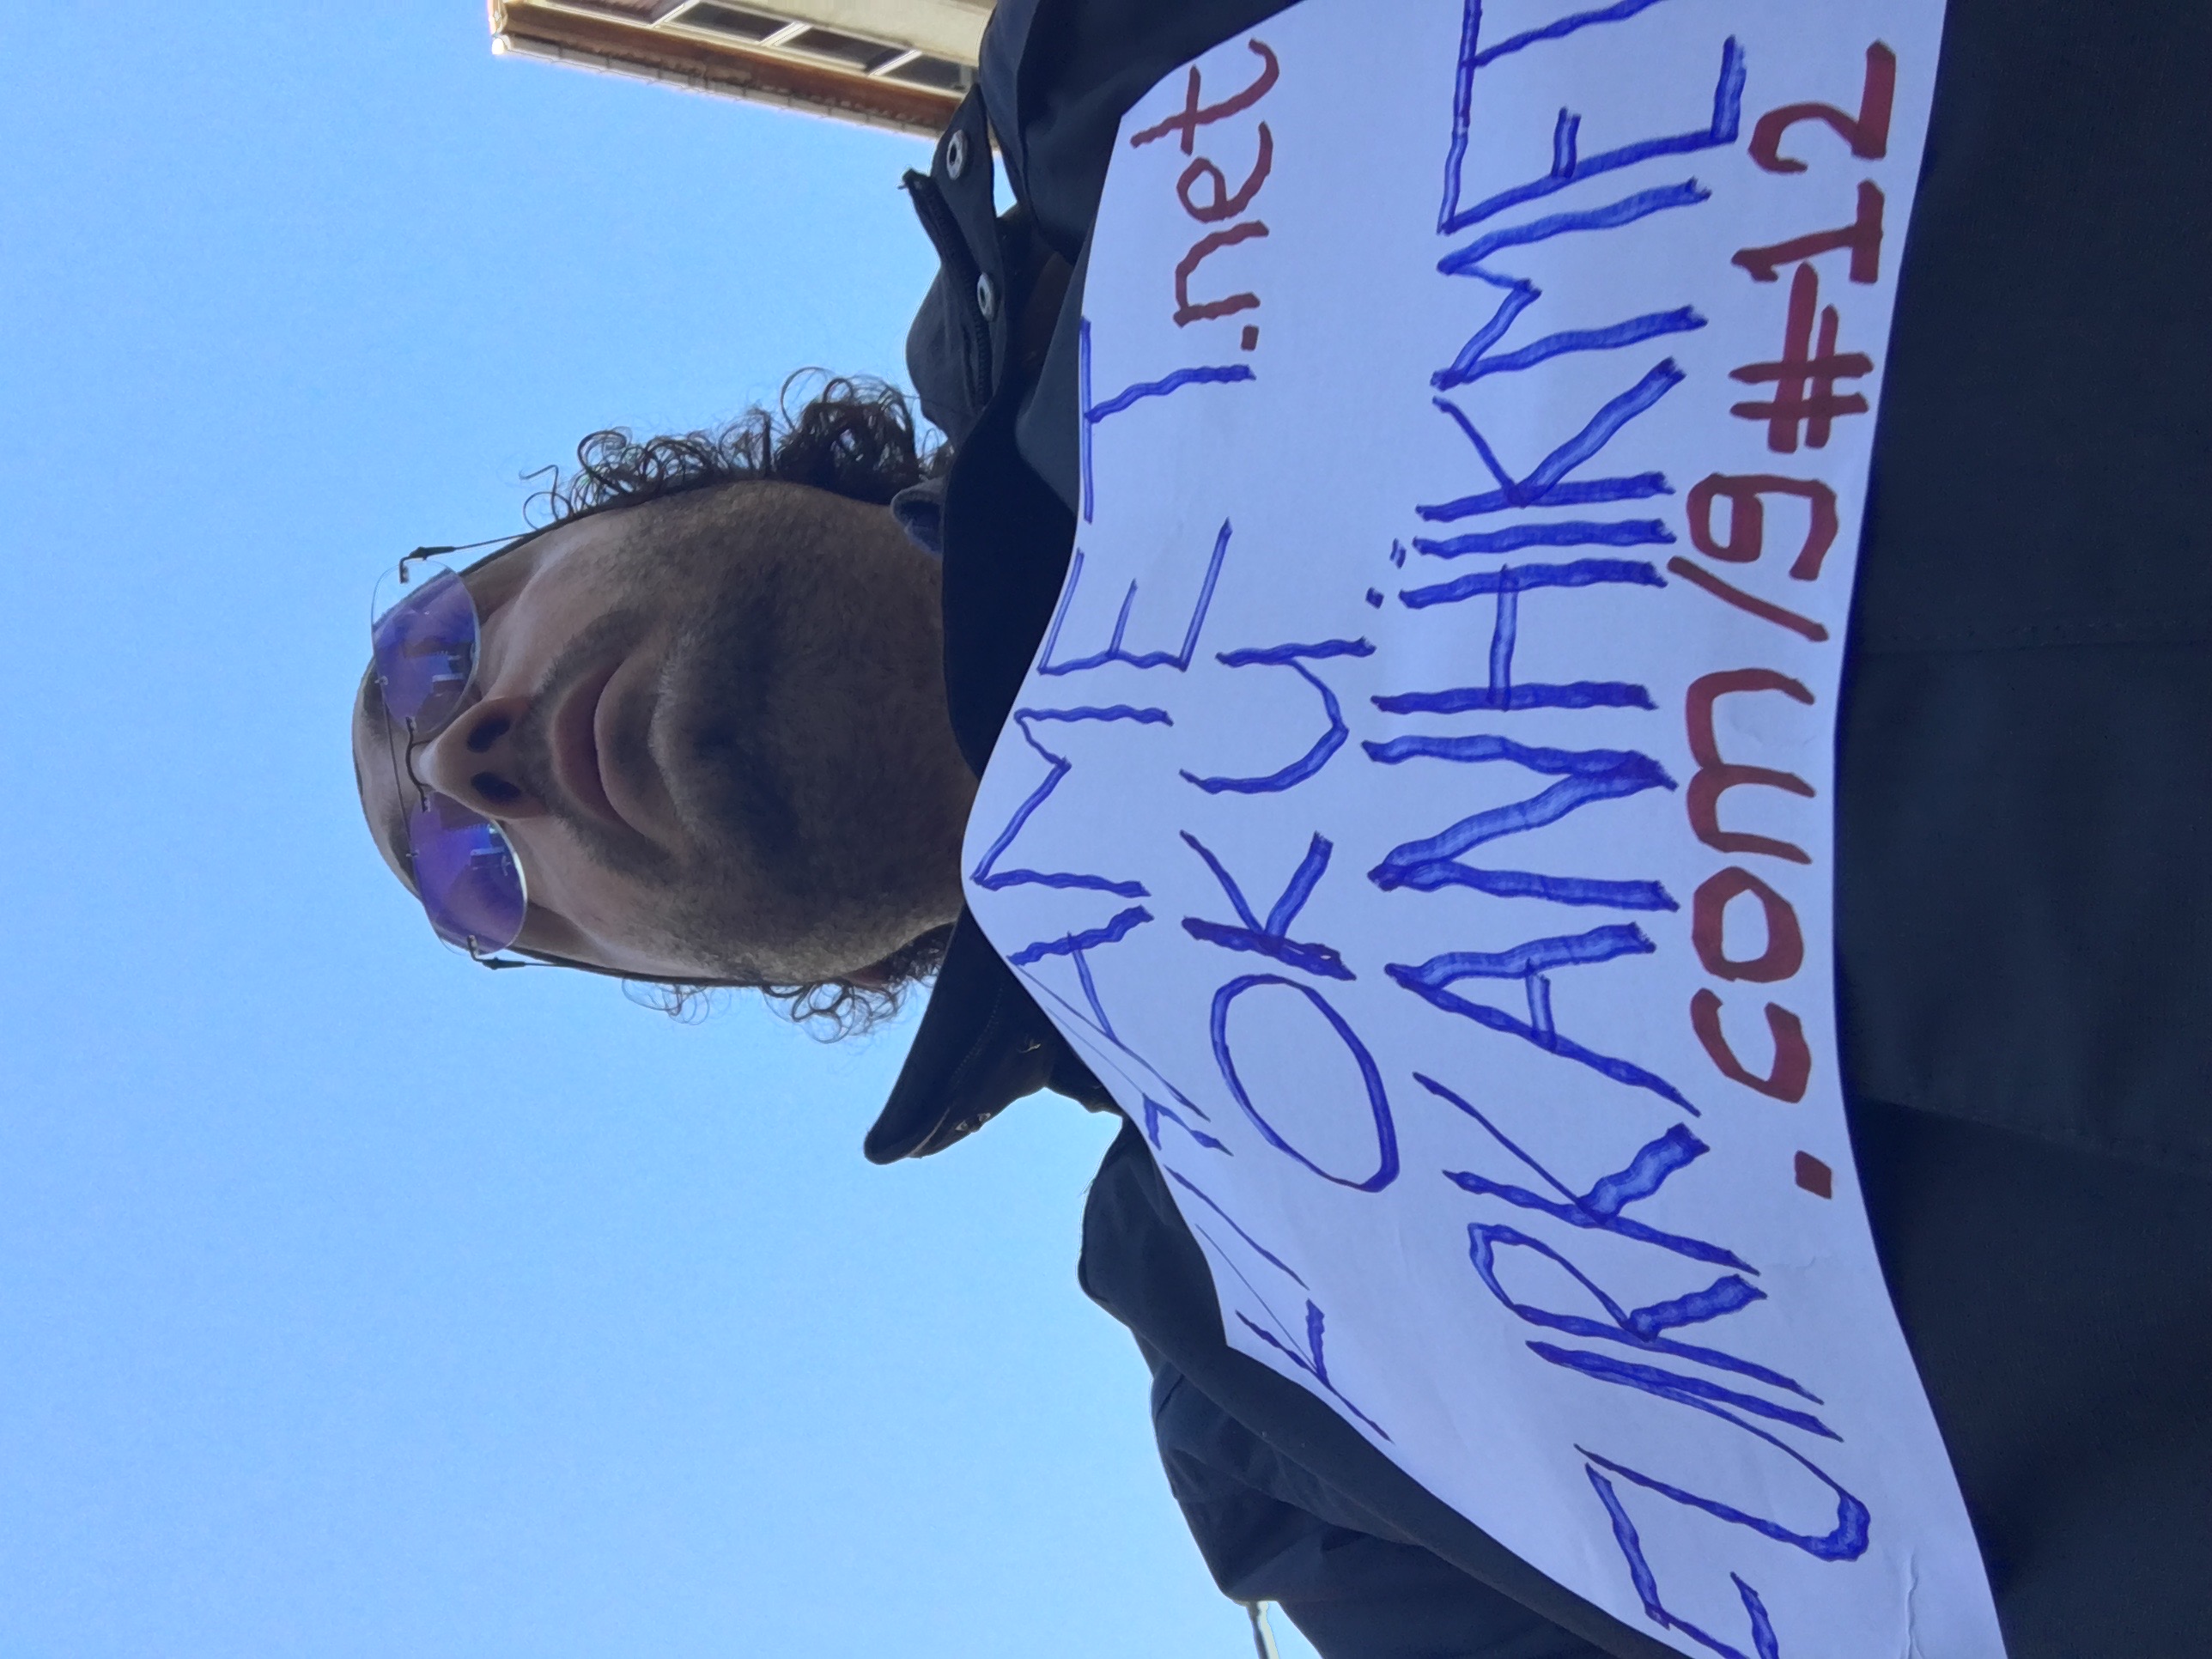 KIYAMET.net
OKU
FURKANHİKMET
.com/9#12